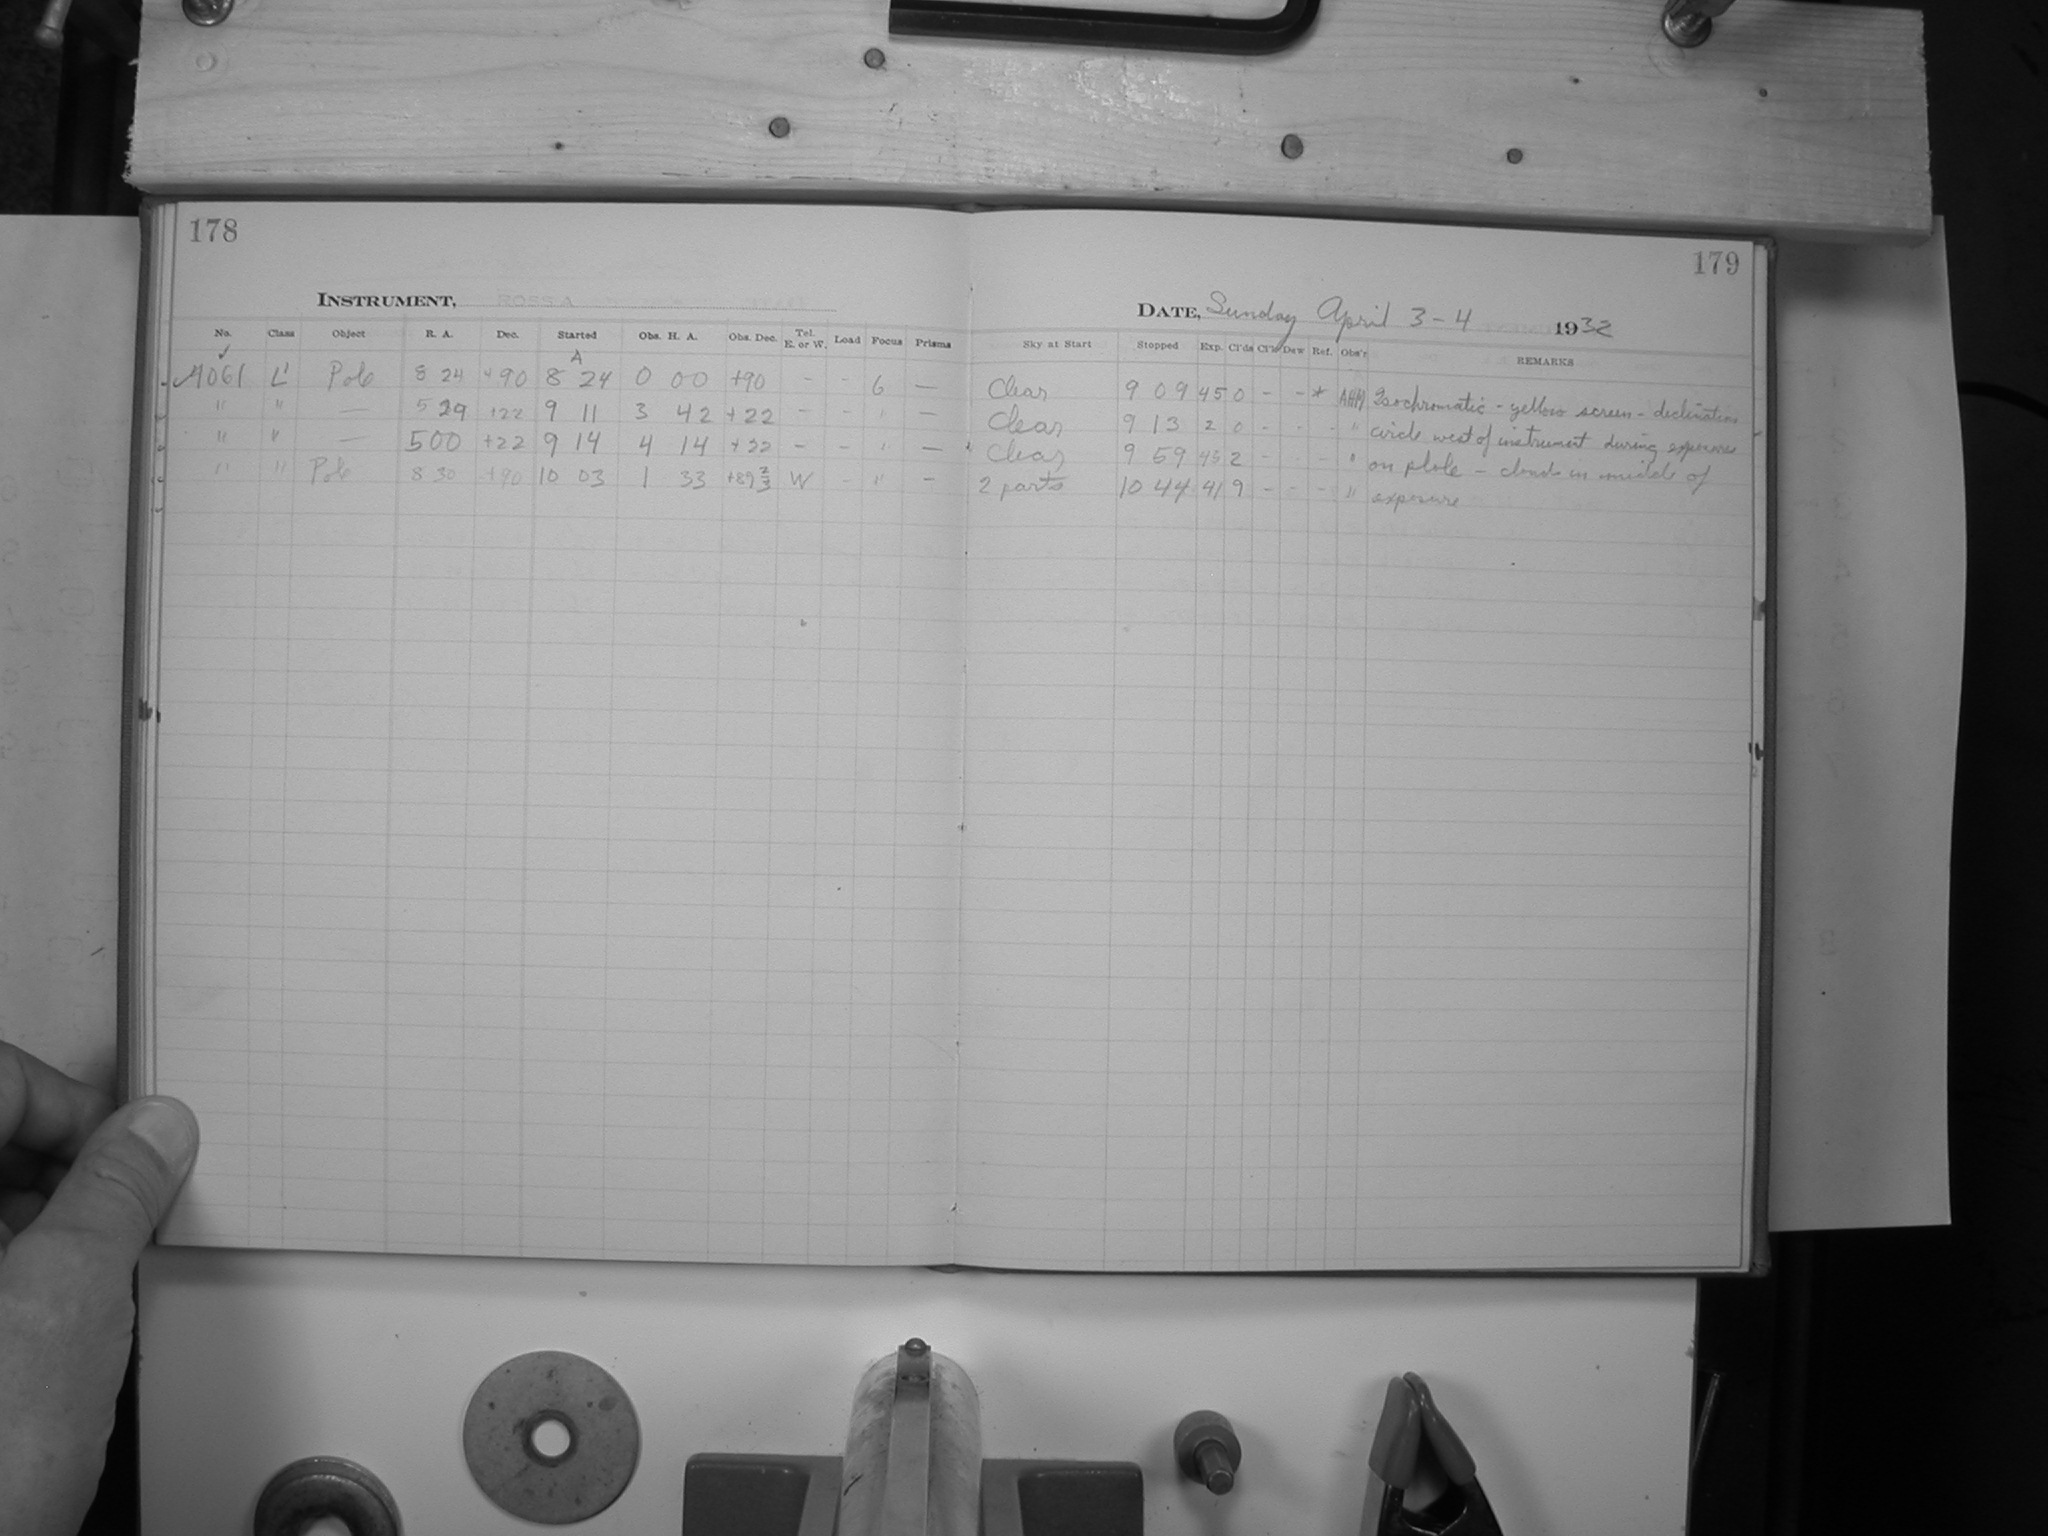 178
179
INSTRUMENT, ROSS A
DATE, Sunday April 3-4 1932
No. Class Object R. A. Dec. Started Obs. H. A. Obs. Dec. Tel. E. or W. Load Focus Prisms Sky at Start Stopped Exp. Cl'ds Cl'k Dew Ref. Obs'r REMARKS
✓ A
4061 L' Pole 8 24 +90 8 24 0 00 +90 - - 6 — Clear 9 09 45 0 - - * AHM Isochromatic - yellow screen - declination
" " — 5 29 +22 9 11 3 42 +22 - - " — Clear 9 13 2 0 - - - " circle west of instrument during exposure
" " — 5 00 +22 9 14 4 14 +22 - - " — Clear 9 59 45 2 - - - " on plate - clouds in middle of
" " Pole 8 30 +90 10 03 1 33 +89 2/3 W - " - 2 parts 10 44 41 9 - - - " exposure